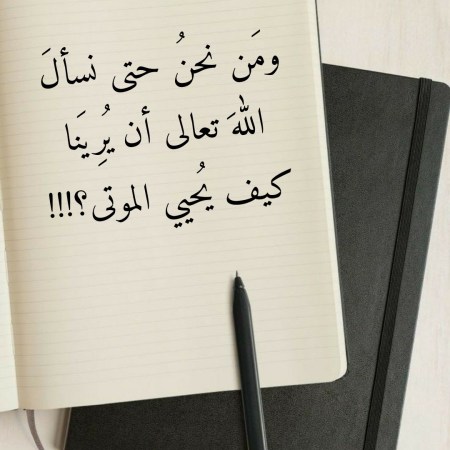 ومَن نحنُ حتى نسألَ
اللهَ تعالى أن يُرِينَا
كيف يُحيي الموتى؟!!!